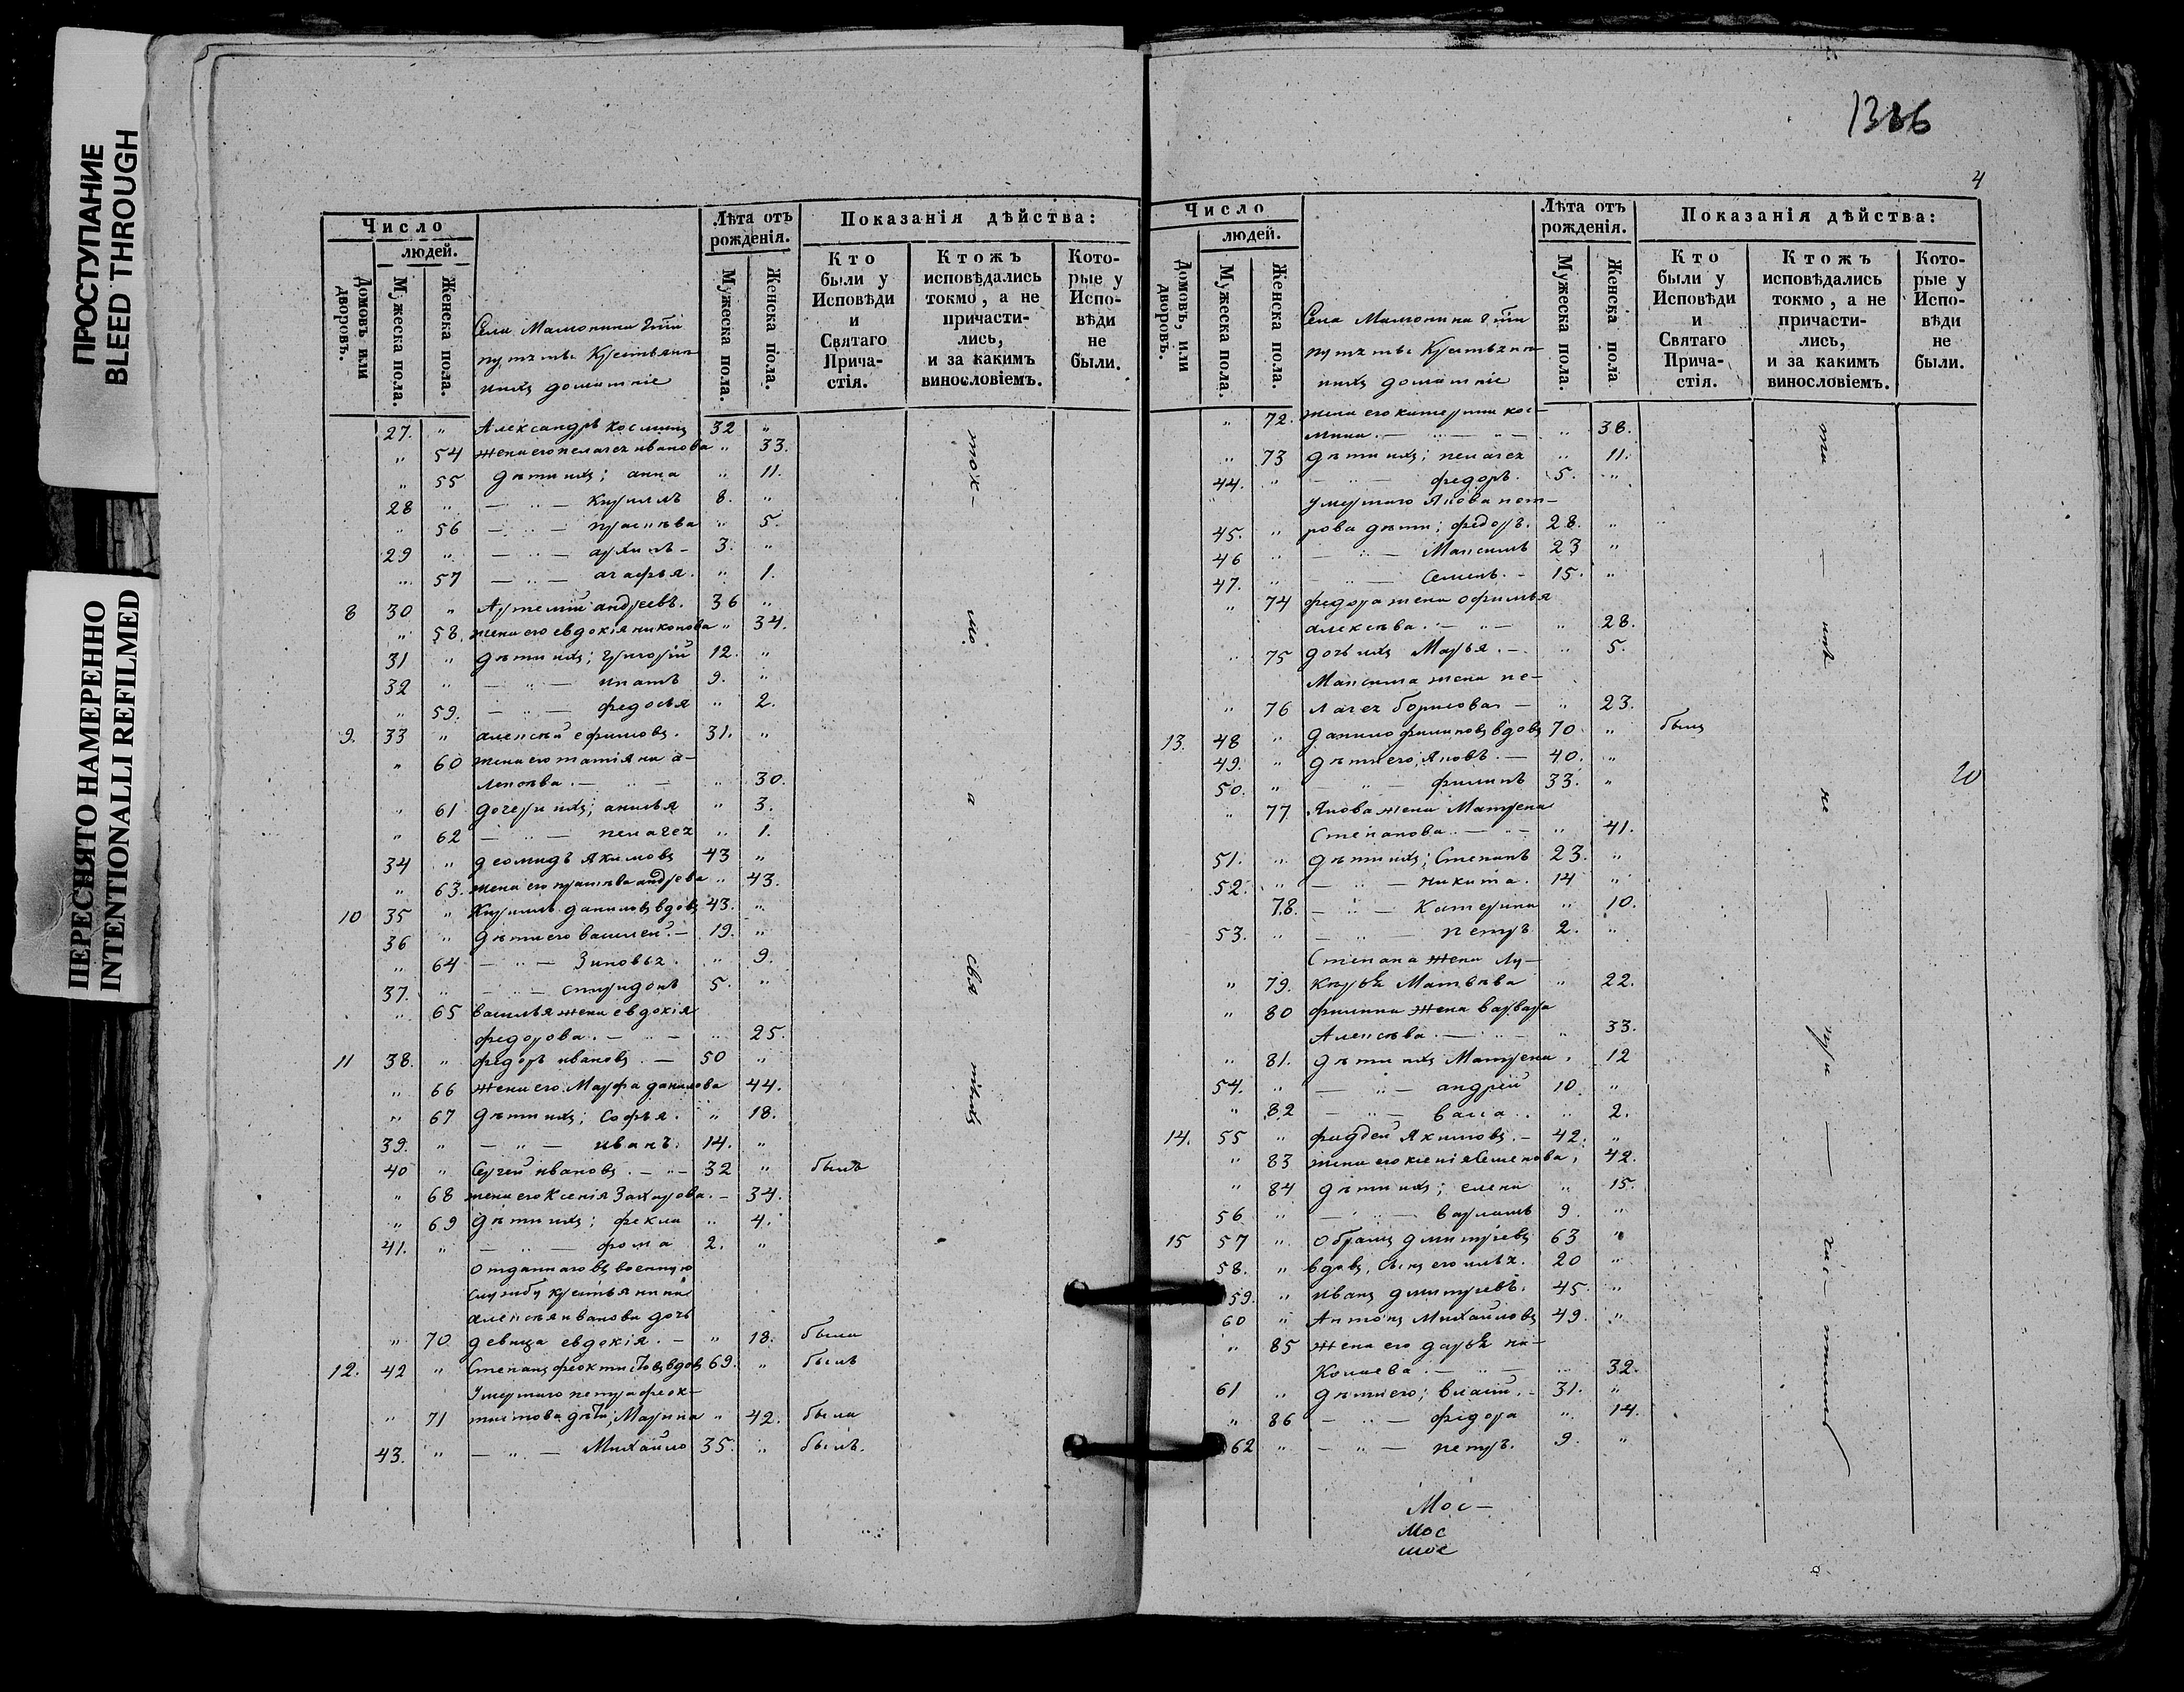 ПРОСТУПАНИЕ
BLEED THROUGH
ПЕРЕСНЯТО НАМЕРЕННО
INTENTIONALLI REFILMED
Число
людей.
Домовъ или дворовъ.
Мужеска пола.
Женска пола.
Лѣта отъ рожденія.
Мужеска пола.
Женска пола.
Показанія дѣйства:
Кто были у Исповѣди и Святаго Прича-стія.
Ктожъ исповѣдались токмо, а не причасти-лись, и за какимъ винословіемъ.
Кото-рые у Испо-вѣди не были.
Села
домашніе
27. " Александръ Косминъ 32 "
" 54 жена его пелагея иванова " 33.
" 55 дѣти ихъ; анна " 11.
28 " — " — Кириллъ 8. "
" 56 — " — праск­ѣва " 5.
29 " — " — архипъ - 3. "
" 57 — " — агафья. " 1.
8 30 " Артемій андреевъ. 36 "
" 58. жена его евдокія никонова " 34.
31 " дѣти ихъ; григорій 12. "
32 " — " — игнатъ 9. "
" 59. — " — федосья " 2.
9. 33 " алексѣй ефимовъ. 31. "
" 60 жена его татіяна а-
лексѣва. — " — " 30.
" 61 дочери ихъ; акилья " 3.
" 62 — " — пелагея " 1.
34 " деомидъ Якимовъ 43 "
" 63. жена его праск­ѣва андрева " 43.
10 35 " Кирилъ даниловъ вдовъ 43. "
36 " дѣти его василей. — 19. "
" 64 — " — Зиновья. " 9.
37. " — " — спиридонъ 5. "
" 65 василья жена евдокія
федорова. — " — " 25.
11 38. " федоръ ивановъ. — 50 "
" 66 жена его Марфа данилова 44.
" 67 дѣти ихъ; Софья. " 18.
39. " — " — иванъ. 14. "
40 " Сергей ивановъ. — " — 32 " былъ
" 68 жена его Ксенія Захарова. — 34.
" 69 дѣти ихъ; фекла " 4.
41. " — " — фома 2. "
Отданнаго въ военную
службу крестьянина
алексѣя иванова дочь
" 70 девица евдокія. — " 18. была
12. 42 " Степанъ феоктистовъ вдовъ 69. " былъ
Умершаго петра феок-
" 71 тистова дѣти; Марина " 42. была
43. " — " — Михайло 35. " былъ.
1386
4
Число
людей.
Домовъ, или дворовъ.
Мужеска пола.
Женска пола.
Лѣта отъ рожденія.
Мужеска пола.
Женска пола
Показанія дѣйства:
Кто были у Исповѣди и Святаго Прича-стія.
Ктожъ исповѣдались токмо, а не причасти-лись, и за какимъ винословіемъ.
Кото-рые у Испо-вѣди не были.
Села
домашніе
" 72. жена его катерина кос-
мина. — " — " — " 38.
" 73 дѣти ихъ; пелагея " 11.
44. " — " — федоръ. 5. "
умершаго Якова пет-
45. " рова дѣти; федоръ. 28. "
46 " — " — Максимъ 23 "
47. " — " — Семенъ. — 15. "
" 74 федора жена офимья
алексѣва. — " — " 28.
" 75 дочь ихъ Марья. — " 5.
Максима жена пе-
" 76 лагея борисова — " 23.
13. 48 " данило филиповъ вдовъ 70 " былъ
49. " дѣти его; Яковъ. — 40. "
50. " — " — филипъ 33. "
" 77 Якова жена Матрена
Степанова. — " — " 41.
51. " дѣти ихъ; Степанъ 23. "
52. " — " — никита. 14 "
78. — " — Катерина " 10.
53. " — " — петръ 2. "
Степана жена Лу-
" 79. керья Матвѣва " 22.
" 80 филипа жена варвара
Алексѣва. — " — " 33.
" 81. дѣти ихъ Матрена " 12
54. " — " — андрей 10 "
" 82 — " — васса. " 2.
14. 55 " фаддей Якимовъ. — 42. "
" 83 жена его ксенія Семенова " 42.
" 84 дѣти ихъ; елена " 15.
56 " — " — варламъ 9. "
15 57 " дмитріевъ 63 "
58. " вдовъ, Сынъ его илья. 20 "
59. " иванъ дмитревъ. 45. "
60 " Антонъ Михайловъ 49. "
" 85 жена его дарья
" 32.
61 " дѣти его; власій. — 31. "
" 86 — " — федора " 14.
62 " — " — петръ. 9. "
Мос-
мос
мос